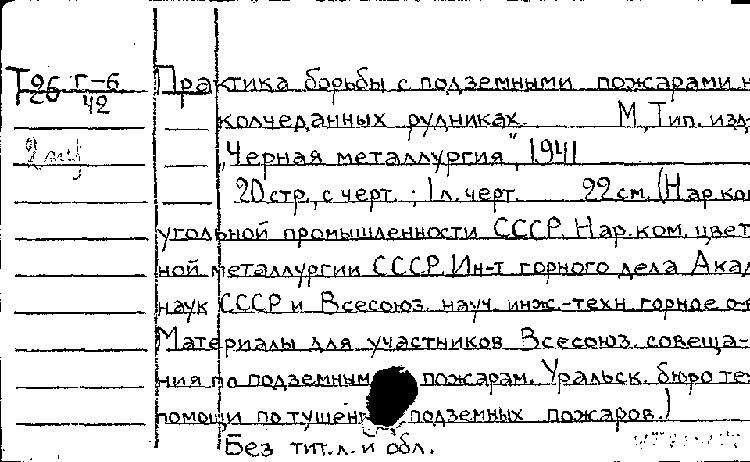 Т26 г-6 Практика борьбы с подземными пожарами н
42
колчеданных рудниках. М., Тип. изд
2
„Черная металлургия", 1941
20 стр., с черт.; 1 л. черт. 22 см. (Нар.ком
угольной промышленности СССР. Нар.ком. цвет
ной металлургии СССР. Ин-т горного дела Акад
наук СССР и Всесоюз. науч. инж.-техн. горное о-в
Материалы для участников Всесоюз. совеща-
ния по подземным пожарам. Уральск. бюро те
помощи по тушен подземных пожаров.)
Без тит. л. и обл.